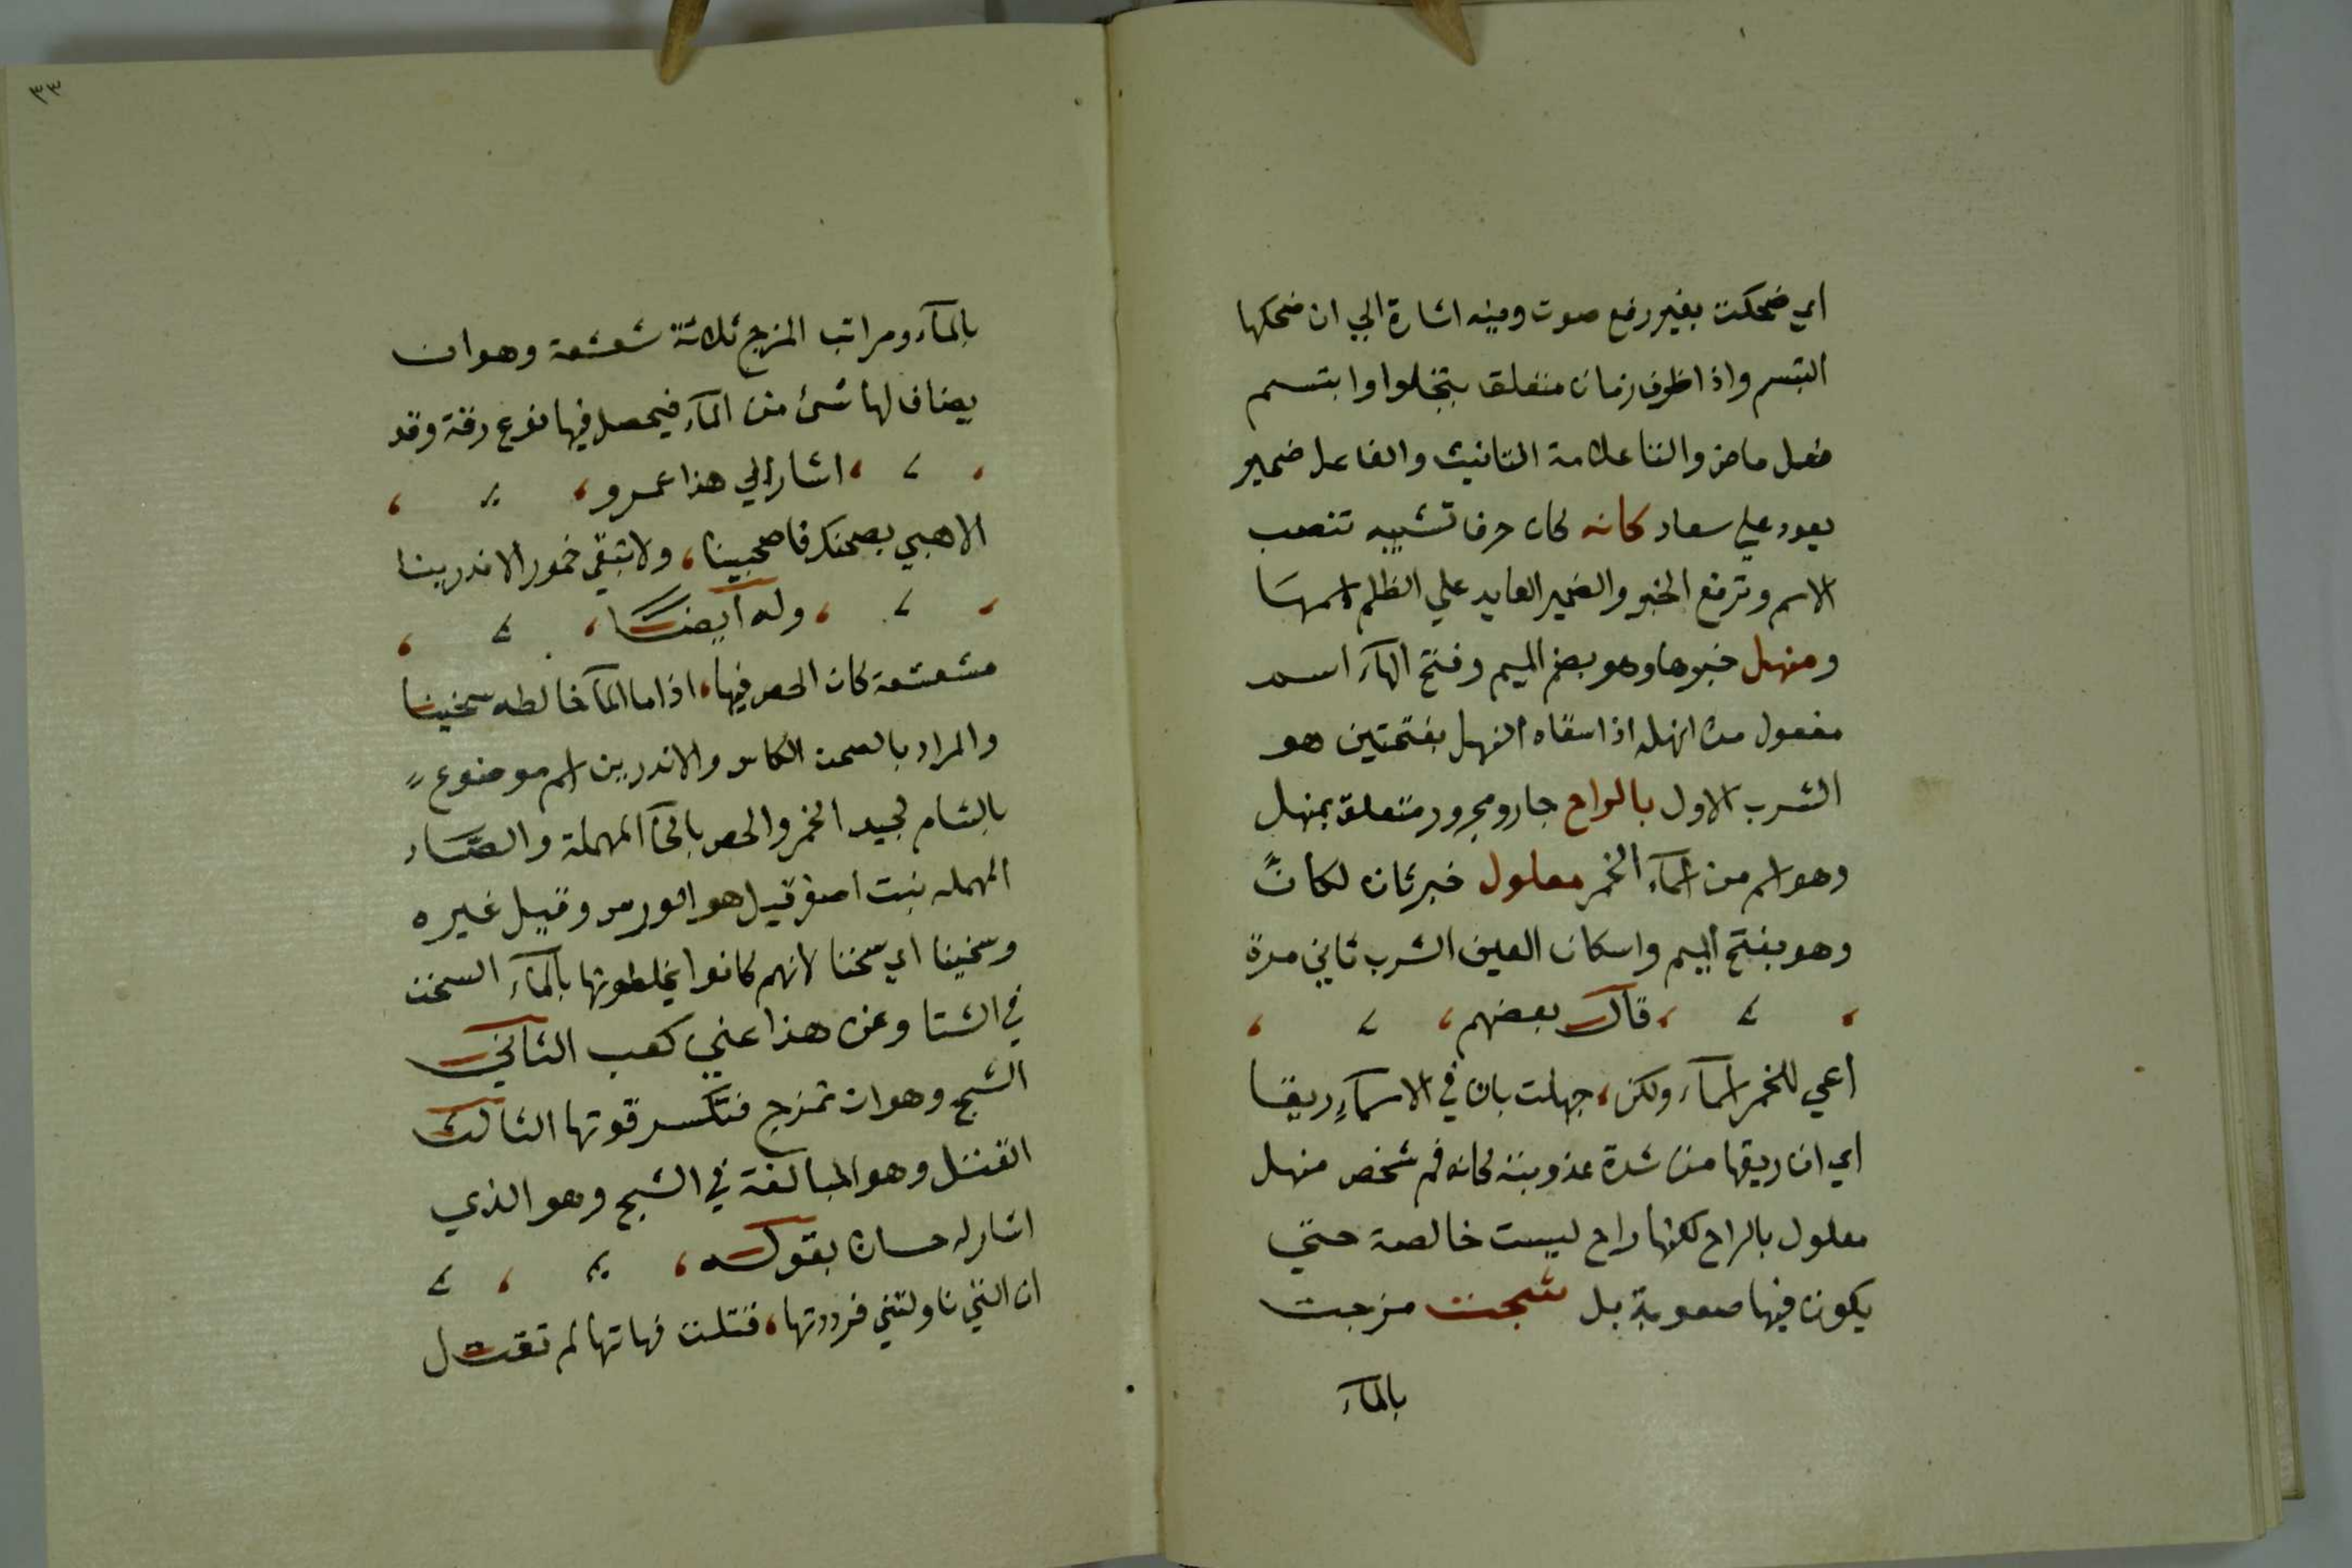 اي ضحكت بغير رفع صوت وفيه اشارة الي ان ضحكها
التبسم واذا ظرف زمان متعلق بتجلوا وابتسم
فعل ماض والتا علامة التانيث والفاعل ضمير
يعود علي سعاد كانه كان حرف تشبيه تنصب
الاسم وترفع الخبر والضمير العايد علي الظلم اسمها
ومنهل خبرها وهو بضم الميم وفتح الهاء اسم
مفعول من انهله اذا سقاه النهل بفتحتين هو
الشرب الاول بالراح جار ومجرور متعلق بمنهل
وهو اسم من اسماء الخمر معلول خبر ثان لكان
وهو بفتح الميم واسكان العين الشرب ثاني مرة
، قال بعضهم ،
اعي للخمر اسماء ولكن ، جهلت بان في الاسماء ريقا
اي ان ريقها من شدة عذوبته كانه فم شخص منهل
معلول بالراح لكنها راح ليست خالصة حتي
يكون فيها صعوبة بل شجت مزجت
بالماء
٣٣
بالماء ومراتب المزج ثلاثة شعشعة وهو ان
يضاف لها شئ من الماء فيحصل فيها نوع رقة وقد
، اشار الي هذا عمرو ،
الا هبي بصحنك فاصحبينا ، ولا تبقي خمور الاندرينا
، وله ايضا ،
مشعشعة كان الحص فيها ، اذا ما الماء خالطه سخينا
والمراد بالصحن الكاس والاندرين اسم موضوع
بالشام لجيد الخمر والحص بالحاء المهملة والصاد
المهمله نبت اصفر قيل هو الورس وقيل غيره
وسخينا اي سخنا لانهم كانوا يخلطونها بالماء السخن
في الشتا وعن هذا عني كعب الثاني
الشج وهو ان تمزج فتكسر قوتها الثالث
القتل وهو المبالغة في الشج وهو الذي
اشار له حسان بقوله ،
ان التي ناولتني فرددتها ، قتلت فهاتها لم تقتل